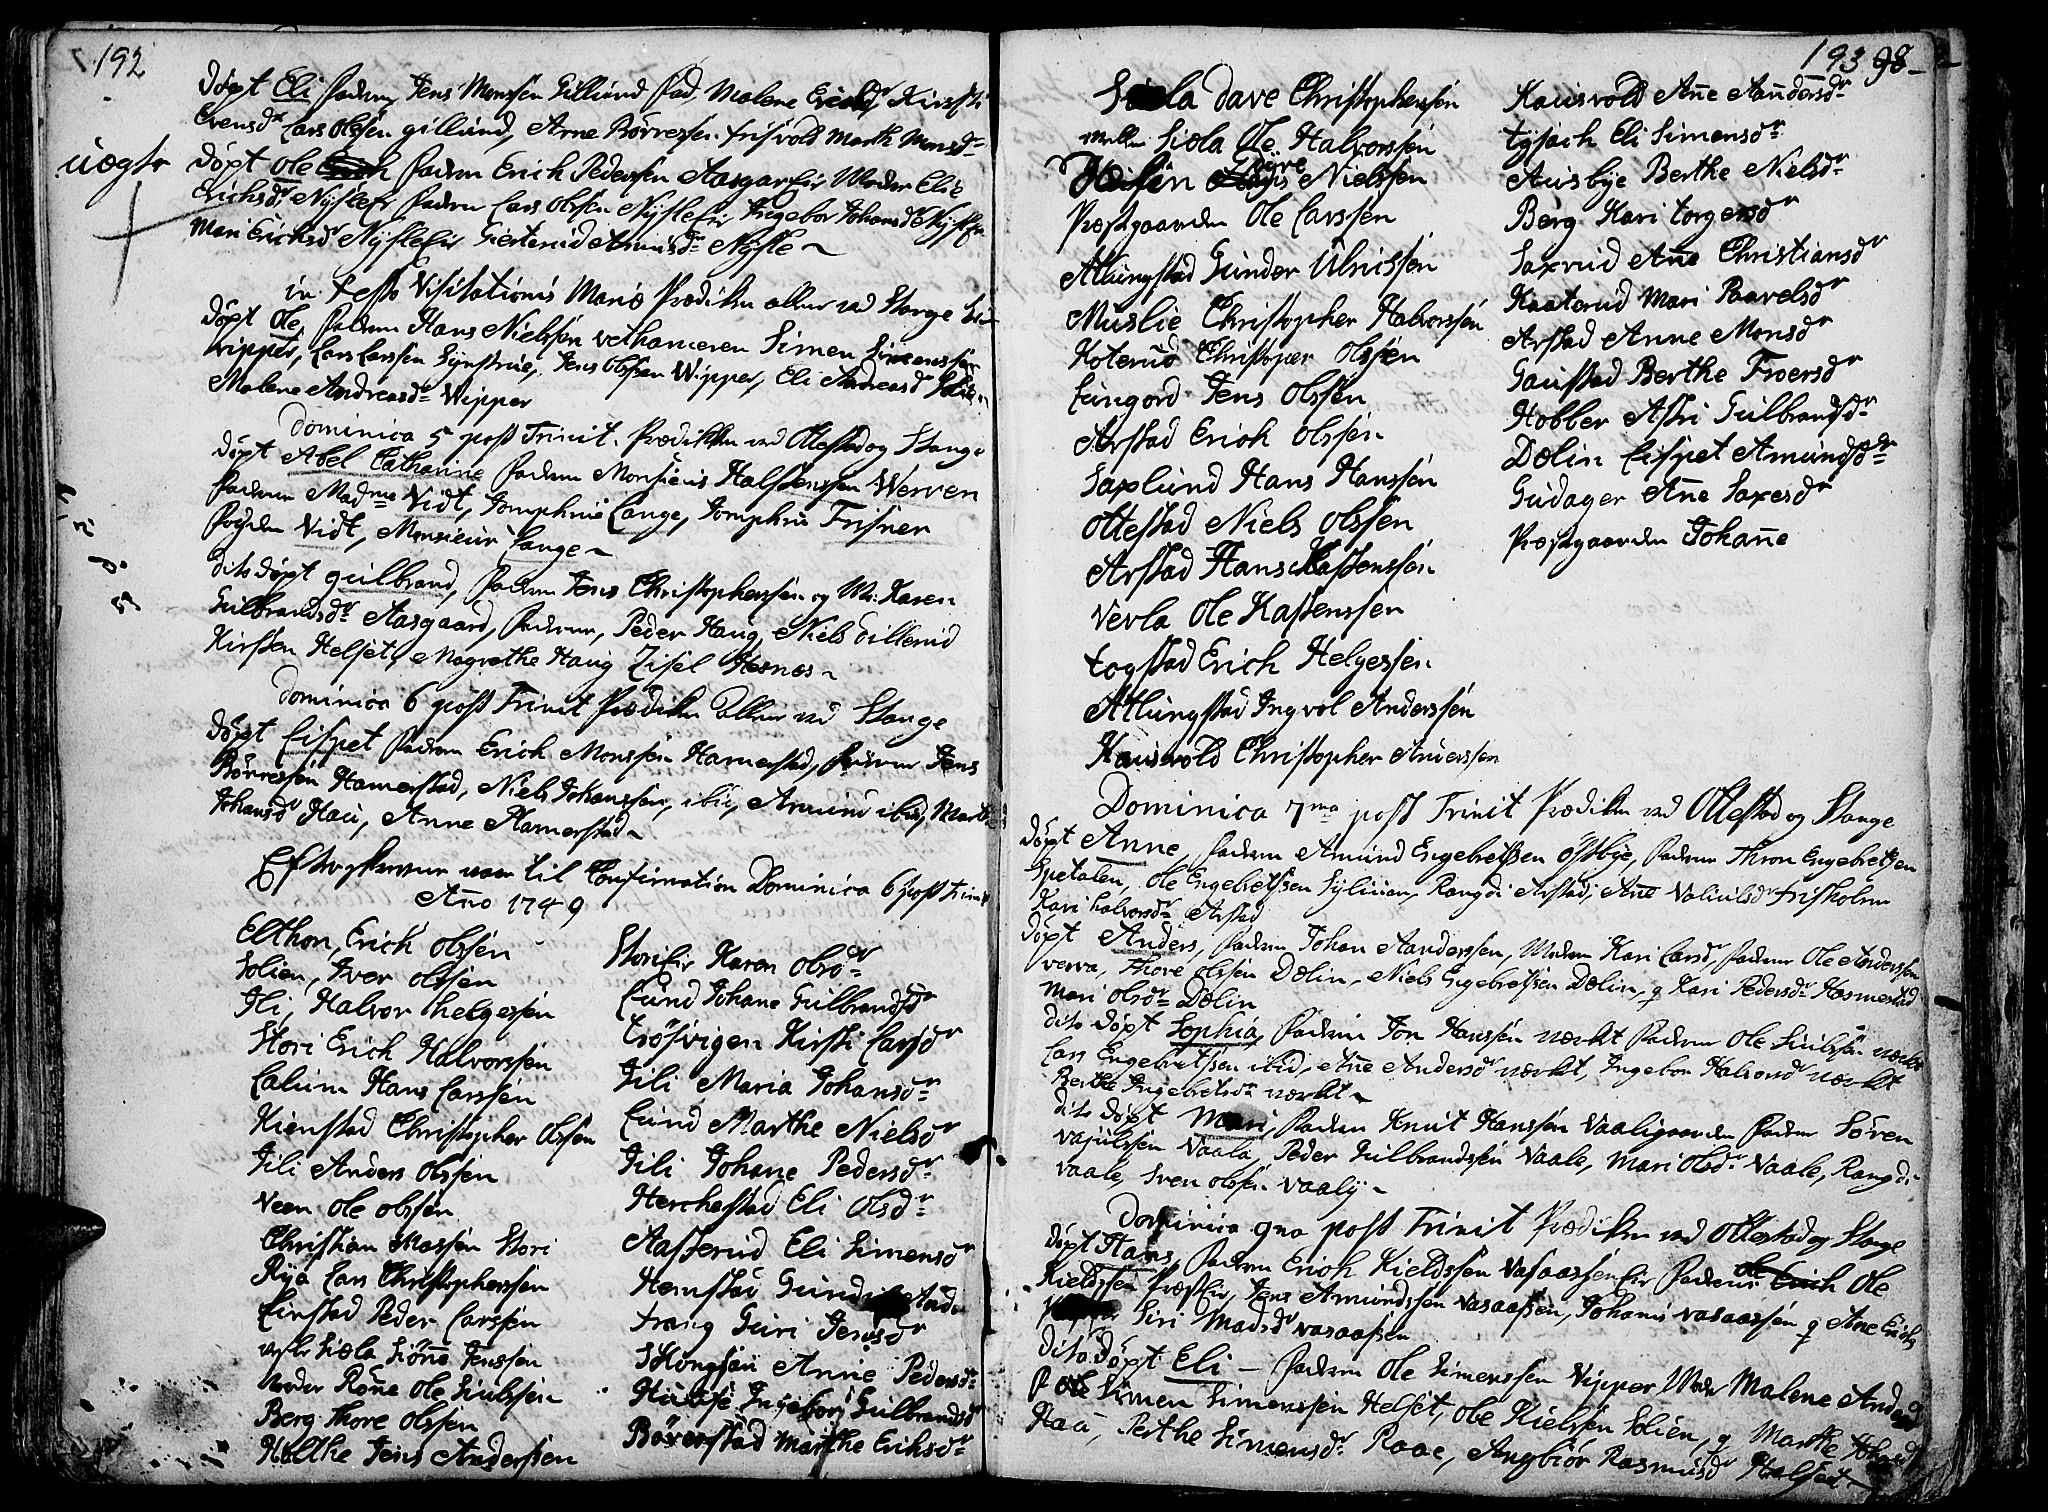 192
Døpt Eli fadren Jens Monssen Gillund fad Malene Kirsti
Evensdr Lars Olssen gillund, Arne Børressen frisvold Marth Monsdr
uægte
Døpt Ole fadren Erich Pederssen Aasgar Moder Eli
Erichsdr Nÿsle fadren Lars Olssen Nÿsle Ingebor Johansdr
Mari Erichsdr Nÿsle Giertrud Amunsdr Nÿsle
in festo Visitationis Mariæ Prædiken allene ved Stange
Døpt Ole, fadren Hans Nielssen Simen Simenssen
wipper, Lars Larssen, Jens Olssen Wipper, Eli Andreasdr
Malene Andreasdr Wipper
Dominica 5 post Trinit. Prædiken ved Ottestad og Stange
Døpt Abel Cathrine fadren Monsieur Half Jenssen Werven
fadrene Madme Vidt, Jomphrue Lange, Jomphrue Frisner
Vidt, Monsieur Lange
dito døpt gulbrand, fadren Jens Christopherssen og Mo: Karen
Gulbrandsdr Aasgaard, fadrene, Peder Haug, Niels Dillerud
Kirsten Helset, Magrethe Haug Zisel Hesnes
Dominica 6 post Trinit Prædiken allene ved Stange
Døpt Lispet fadren Erich Monssen Hamerstad, fadrene Jens
Børressen Hamerstad, Niels Johanssen, ibid, Amund ibid, Marte
Johansdr Hau, Anne Hamerstad
Efterskrevne var til Confirmation Dominica 6 post trinit
Año 1749
Elthon, Erich Olssen
Solien, Iver Olssen
Ili, Halvor helgessen
Stori Erich Halvorssen
Lalum Hans Larssen
Kienstad Christopher Olssen
Ili Anders Olssen
Veen Ole Olssen
Christian Massen Stori
Rÿa Lars Christopherssen
Linstad Peder Larssen
Siøla Siøne Jenssen
Røne Ole Siulssen
Berg Thore Olssen
Holthe Jens Anderssen
Karen Olsdr
Lund Johane Gulbrandsdr
trøsvigen Kirsti Larsdr
Jili Maria Johansdr
Lund Marthe Nielsdr
Jili Johane Pedersdr
Herchestad Eli Olsdr
Aasserud Eli Simensdr
Hemstad
trang Guri Jensdr
Skongsøn Anne Pedersdr
Ingebor Gulbrandsdr
Børrestad Marthe Eriksdr
193 98
Siøla Dave Christopherssen
Siøla Ole Halvorssen
Tore Nielssen
Præstgaarden Ole Larssen
Atlungstad Gunder Ulricssen
Muslie Christopher Halvorssen
Hoterud Christoper Olssen
Lungord Jens Olssen
Arstad Erich Olssen
Saxlund Hans Hanssen
Ottestad Niels Olssen
Arstad Hans Kastenssen
Verla Ole Kastenssen
togstad Erich Helgessen
Atlungstad Ingvol Anderssen
Hausvold Christopher Anderssen
Hausvold Añe Añdersdr
tÿsach Eli Simensdr
Ausbÿe Berthe Nielsdr
Berg Kari torgersdr
Saxrud Aña Christiansdr
Kaaterud Mari Paavelsdr
Arstad Anne Monsdr
Gaustad Berthe Froersdr
Hobber Assri Gulbrandsdr
Dælin Lispet Amundsdr
Gudager Añe Saxesdr
Præstgaarden Johañe
Dominica 7ma post Trinit Prædiken ved Ottestad og Stange
Døpt Anne, fadren Amund Engebretssen Østbÿe, fadrene Thron Engebretssen
Spetalen, Ole Engebretssen, Rangdi Arstad, Añe frisholm
Kari halvorsdr Arstad
Døpt Anders, fadren Johan Aanderssen, Modren Kari Larsdr, fadrene Ole Anderssen
verva, Thore Olssen Dælin, Niels Engebretssen Dælin, q Kari Pedersdr Hosmestad
Mari Olsdr Dælin
dito Døpt Sophia, fadren Jon Hanssen værkt fadrene Ole Siulssen
Lars Engebretssen ibid, Añe Andersdr værkt, Ingebor Halvorsdr værkt
Berthe Ingebretsdr værkt
dito Døpt Mari, fadren Knut Hanssen Vaaligaarden fadrene Søren
Vaala, Peder Gulbrandssen Vaale, Mari Olsdr Vaale, Rangdi
vaale, Sven Olssen vaalÿ
Dominica 9na post Trinit Prædiken ved Ottestad og Stange
Døpt Hans, fadren Erich Kieldssen Vasaassen fadrene Ole
Kieldssen, Jens Amundssen Vasaassen, Johans vasaassen q Ane
Siri Madsdr vasaassen
dito Døpt Eli fadren Ole Simenssen Vipper Moder Malene
Simen Simenssen Helset, Ole Kielssen Solien, q Marthe
Hau, Berthe Simensdr Raae, Angbiør Rasmusdr Helset